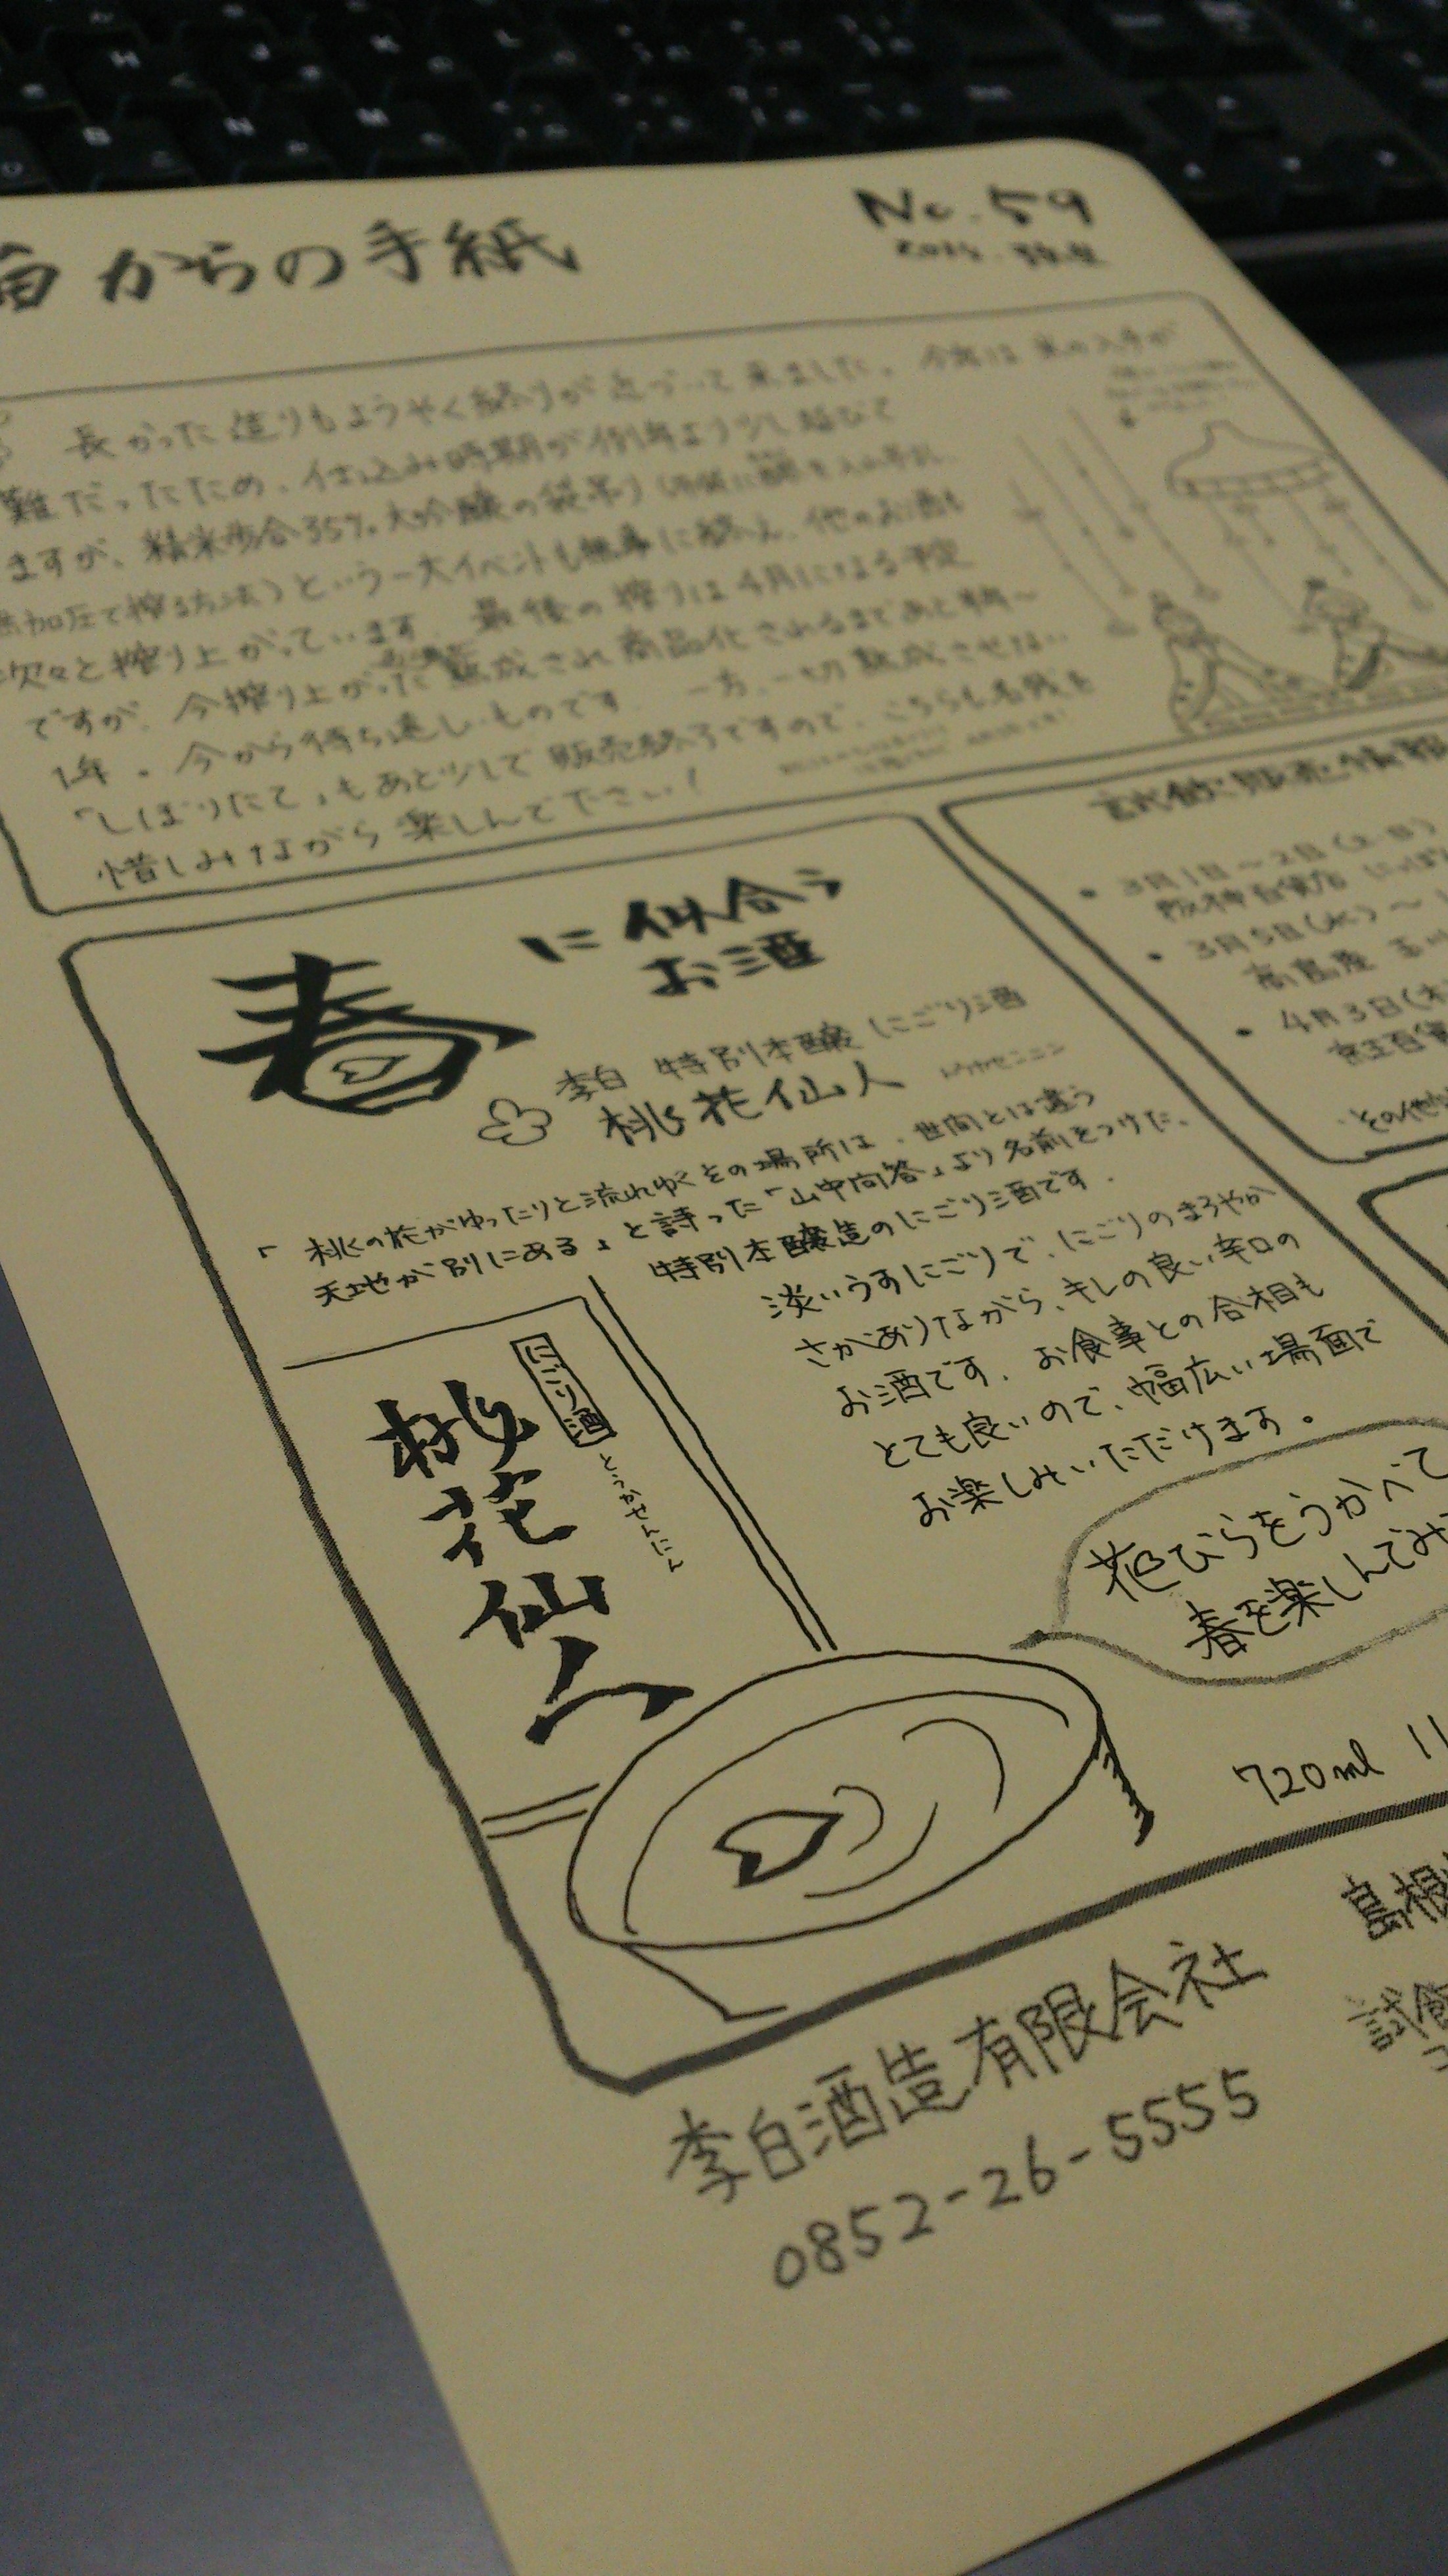 白からの手紙
No.59
長かった造りもようやく終りが近づいて来ました。今年は米の入手が
難だったため、仕込み時期が例年より少し
ますが、精米歩合35%大吟醸の袋吊り
加圧で搾る方法)という一大イベントも無事に終え、他のお酒も
次々と搾り上がっています。最後の搾りは4月になる予定
ですが、今搾り上がった 熟成され商品化されるまであと半年〜
1年。今から待ち遠しいものです。一方、一切熟成させない
「しぼりたて」もあと少しで販売終了ですので、こちらも名残を
惜しみながら楽しんで下さい!
春に似合う
お酒
李白 特別本醸 にごり酒
桃花仙人
「桃の花がゆったりと流れゆくその場所は、世間とは違う
天地が別にある」と詩った「山中問答」より名前をつけた、
特別本醸造のにごり酒です。
淡いうすにごりで、にごりのまろやか
さがありながら、キレの良い辛口の
お酒です。お食事との合相も
とても良いので、幅広い場面で
お楽しみいただけます。
にごり酒
桃花仙人
とうかせんにん
花びらをうかべて
春を楽しんでみ
720ml 11
3月1日〜2日(土・日)
阪神百貨店
3月5日(水)〜
高島屋
4月3日(木
京王百貨
その他
李白酒造有限会社
0852-26-5555
島根